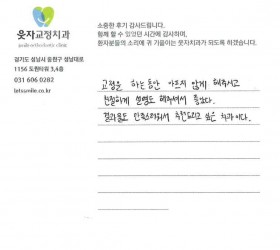 웃자교정치과
smile orthodontic clinic
경기도 성남시 중원구 성남대로
1156 도원타워 3,4층
031 606 0282
letsmile.co.kr
소중한 후기 감사드립니다.
함께 할 수 있었던 시간에 감사하며,
환자분들의 소리에 귀 기울이는 웃자치과가 되도록 하겠습니다.
교정을 하는동안 아프지 않게 해주시고
친절하게 설명도 해주셔서 좋았다.
결과물도 만족스러워서 추천드리고 싶은 치과이다.